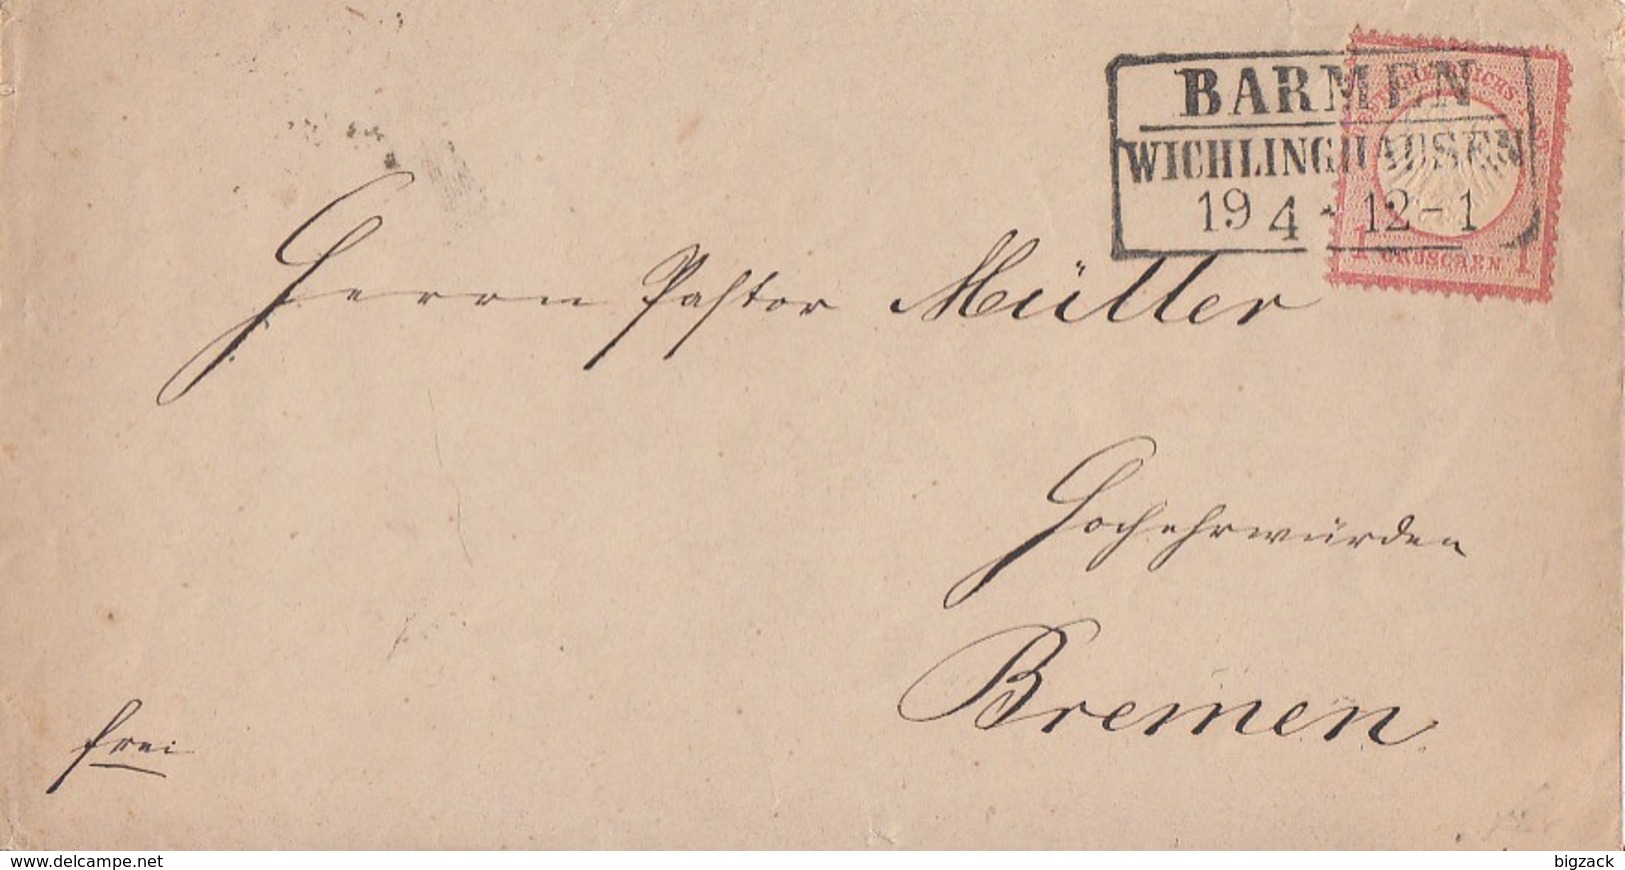 BARMEN
WICHLINGHAUSEN
19 4 * 12-1
DEUTSCHE REICHS-POST
1 GROSCHEN 1
Herrn Pastor Müller
Hochehrwürden
Bremen
frei
www.delcampe.net
bigzack